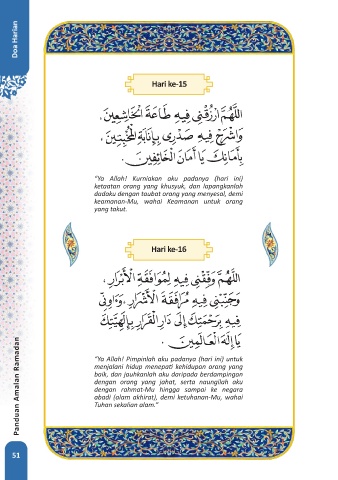 Doa Harian
Hari ke-15
اَللَّهُمَّ ارْزُقْنِي فِيهِ طَاعَةَ الْخَاشِعِينَ ،
وَاشْرَحْ فِيهِ صَدْرِي بِإِنَابَةِ الْمُخْبِتِينَ ،
بِأَمَانِكَ يَا أَمَانَ الْخَائِفِينَ .
“Ya Allah! Kurniakan aku padanya (hari ini)
ketaatan orang yang khusyuk, dan lapangkanlah
dadaku dengan taubat orang yang menyesal, demi
keamanan-Mu, wahai Keamanan untuk orang
yang takut.
Hari ke-16
اَللَّهُمَّ وَفِّقْنِي فِيهِ لِمُوَافَقَةِ الْأَبْرَارِ ،
وَجَنِّبْنِي فِيهِ مُرَافَقَةَ الْأَشْرَارِ ، وَآوِنِي
فِيهِ بِرَحْمَتِكَ إِلَى دَارِ الْقَرَارِ بِإِلَهِيَّتِكَ
يَا إِلَهَ الْعَالَمِينَ .
“Ya Allah! Pimpinlah aku padanya (hari ini) untuk
menjalani hidup menepati kehidupan orang yang
baik, dan jauhkanlah aku daripada berdampingan
dengan orang yang jahat, serta naungilah aku
dengan rahmat-Mu hingga sampai ke negara
abadi (alam akhirat), demi ketuhanan-Mu, wahai
Tuhan sekalian alam.”
Panduan Amalan Ramadan
51